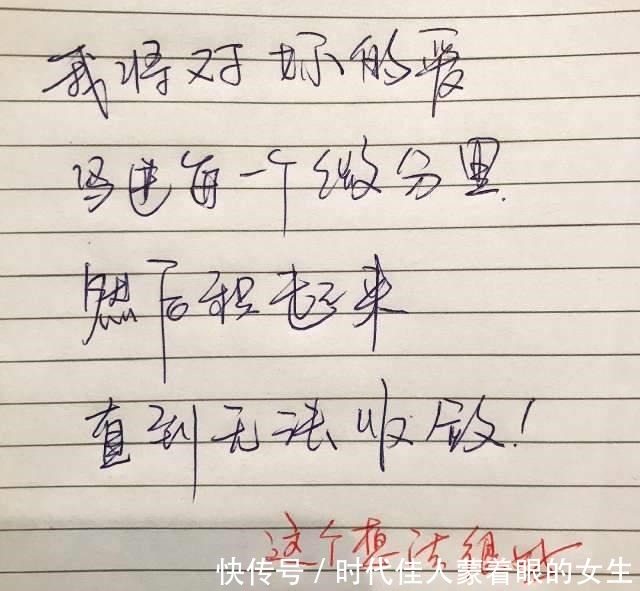 我将对你的爱
写进每一个微分里
然后积起来
直到无法收敛!
这个想法很好
快传号/时代佳人蒙着眼的女生